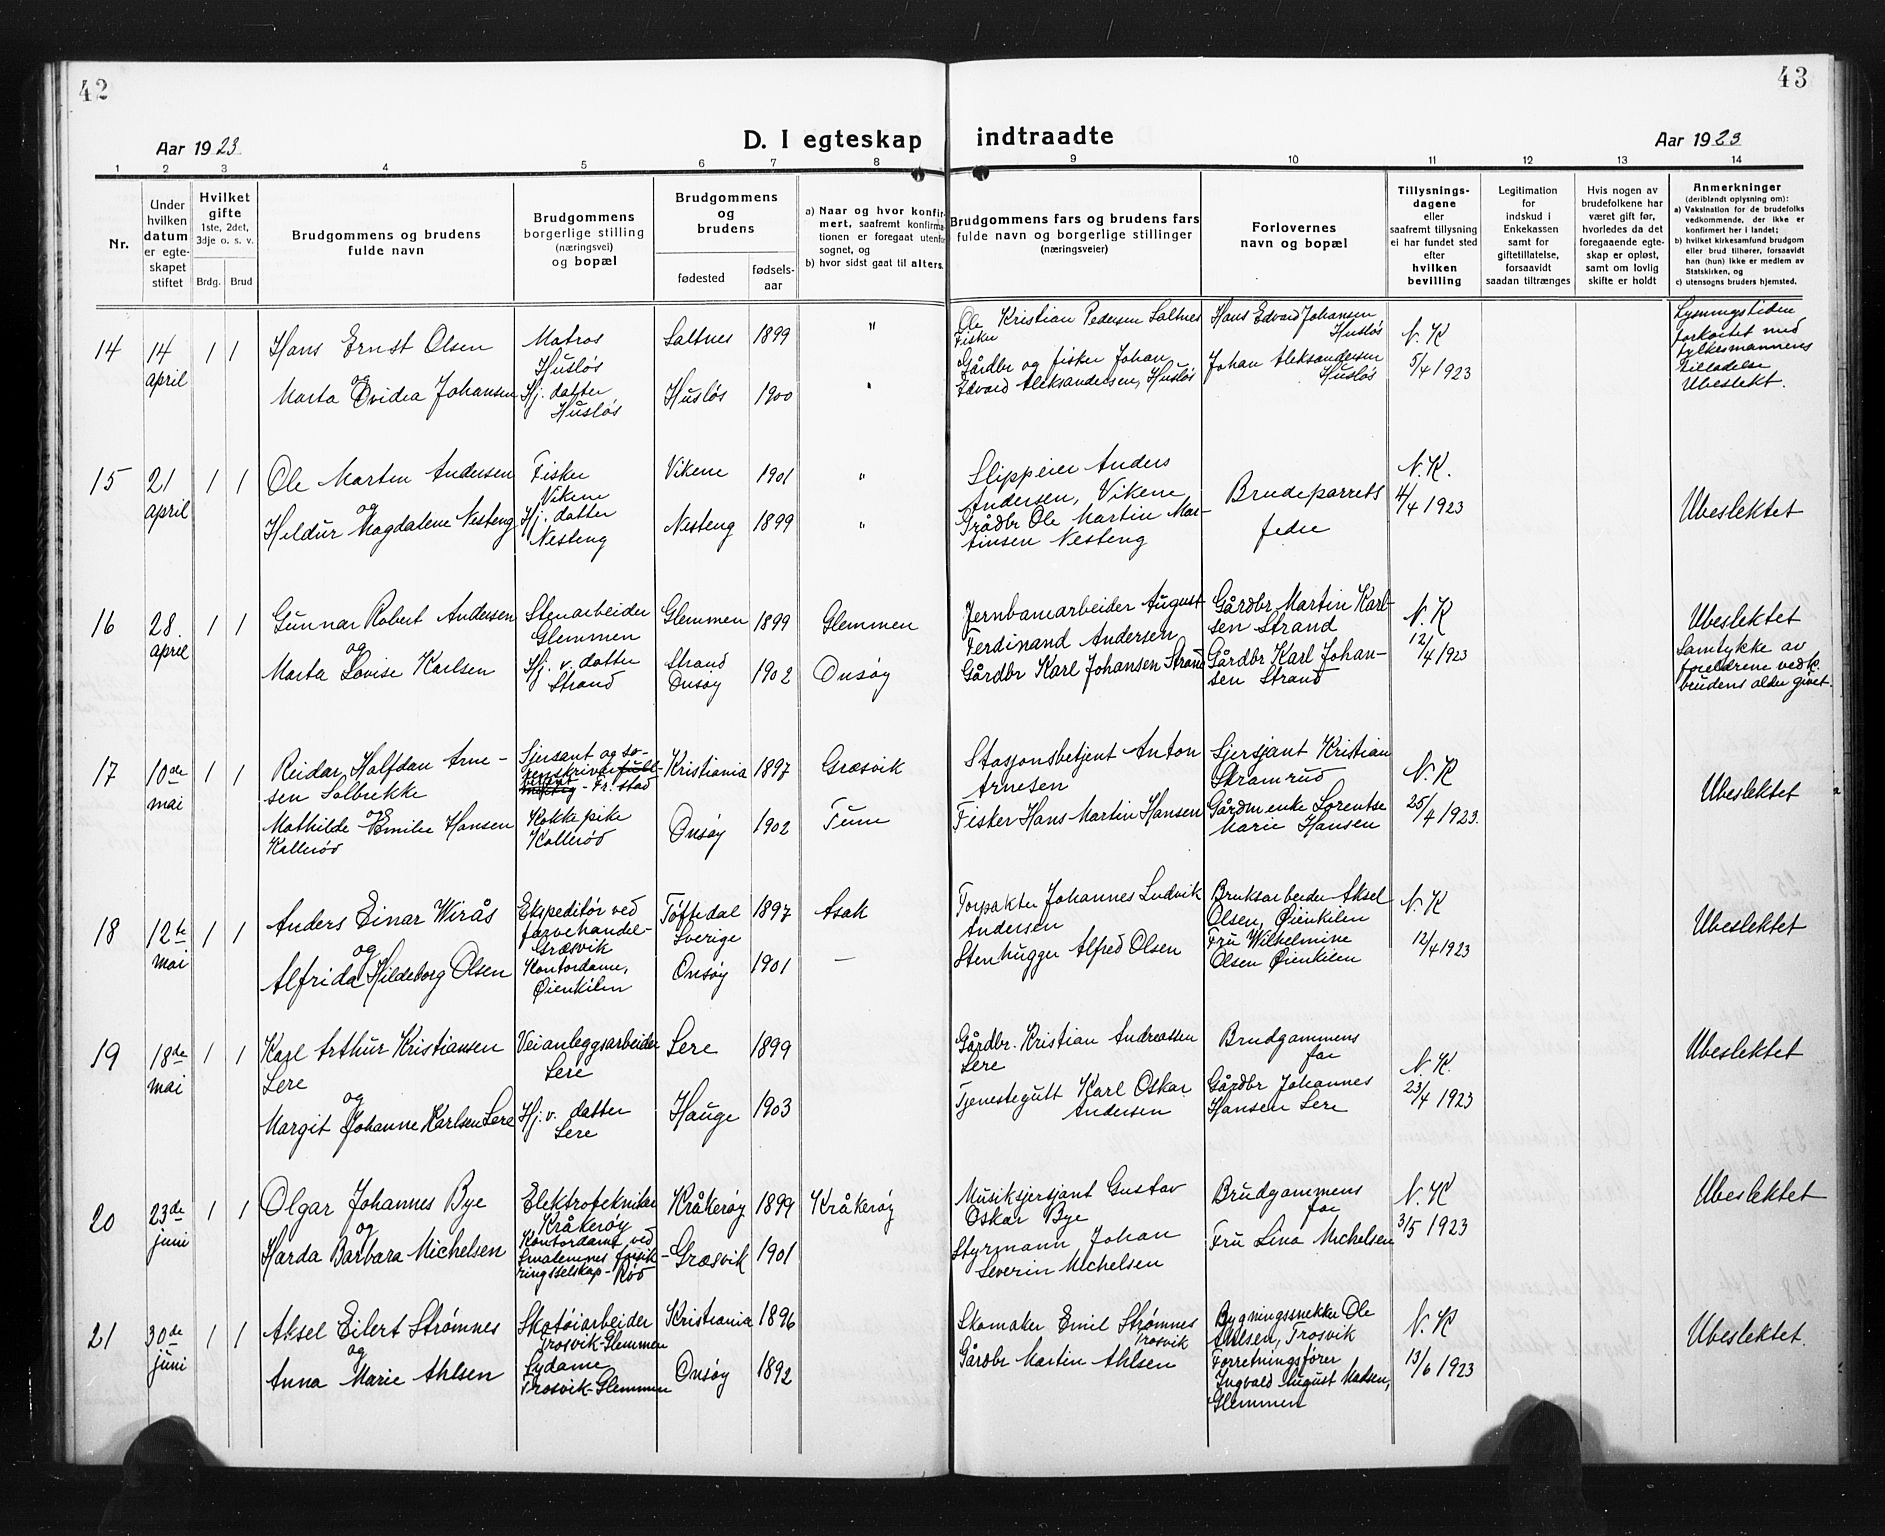 42
43
Aar 1923
D. I egteskap indtraadte
Aar 1923
1 2 3 4 5 6 7 8 9 10 11 12 13 14
Nr.
Under hvilken datum er egteskapet stiftet
Hvilket gifte 1ste, 2det, 3dje o. s. v.
Brdg. Brud
Brudgommens og brudens fulde navn
Brudgommens borgerlige stilling (næringsvei) og bopæl
Brudgommens og brudens
fødested
fødselsaar
a) Naar og hvor konfirmert, saafremt konfirmationen er foregaat utenfor sognet, og
b) hvor sidst gaat til alters.
Brudgommens fars og brudens fars fulde navn og borgerlige stillinger (næringsveier)
Forlovernes navn og bopæl
Tillysningsdagene eller saafremt tillysning ei har fundet sted efter hvilken bevilling
Legitimation for indskud i Enkekassen samt for giftetillatelse, forsaavidt saadan tiltrænges
Hvis nogen av brudefolkene har været gift før, hvorledes da det foregaaende egteskap er opløst, samt om lovlig skifte er holdt
Anmerkninger (deriblandt oplysning om):
a) Vaksination for de brudefolks vedkommende, der ikke er konfirmert her i landet;
b) hvilket kirkesamfund brudgom eller brud tilhører, forsaavidt han (hun) ikke er medlem av Statskirken, og
c) utensogns bruders hjemsted.
14
14 april
1 1
Hans Ernst Olsen
og
Marta Ovidea Johansen
Matros
Husløs
Hj. datter
Husløs
Saltnes 1899 "
Husløs 1900 "
Ole Kristian Pedersen Saltnes
Fisker
Gårdbr og fisker Johan
Edvard Aleksandersen, Husløs
Hans Edvard Johansen
Husløs
Johan Aleksandersen
Husløs
N. K
5/4 1923
Lysningstiden
forkortet med
fylkesmannens
tilladelse
Ubeslekt.
15
21 april
1 1
Ole Marten Andersen
og
Hildur Magdalene Nesteng
Fisker
Vikene
Hj. datter
Nesteng
Vikene 1901 "
Nesteng 1899 "
Slippeier Anders
Andersen, Vikene
Grådbr Ole Martin Mar-
tinsen Nesteng
Brudeparrets
fedre
N. K.
4/4 1923
Ubeslektet
16
28. april
1 1
Gunnar Robert Andersen
og
Marta Lovise Karlsen
Stenarbeider
Glemmen
Hj. v. datter
Strand
Glemmen 1899 Glemmen
Strand
Onsøy 1902 Onsøy
Jernbanarbeider August
Ferdinand Andersen
Gårdbr Karl Johansen Strand
Gårdbr Martin Karl-
sen Strand
Gårdbr Karl Johan-
sen Strand
N. K
12/4 1923
Ubeslektet
Samtykke av
foreldrene vedk.
brudens alder givet.
17
10de mai
1 1
Reidar Halfdan Arne-
sen Solbrekke
og
Mathilde Emilie Hansen
Kallerød
Sjersant og so-
renskriver
- Fr. stad
Kokkepike
Kallerød
Kristiania 1897 Græsvik
Onsøy 1902 Tune
Stasjonsbetjent Anton
Arnesen
Fisker Hans Martin Hansen
Sjersjant Kristian
Stramrud
Gårdm enke Lorentse
Marie Hansen
N. K
25/4 1923.
Ubeslektet
18
12te mai
1 1
Anders Einar Wirås
og
Alfrida Hildeborg Olsen
Ekspeditør ved
farvehandel-
Græsvik
Kontordame,
Øienkilen
Tøftedal
Sverige 1897 Asak
Onsøy 1901 —
Forpakter Johannes Ludvik
Andersen
Stenhugger Alfred Olsen
Bruksarbeider Aksel
Olsen, Øienkilen
Fru Wilhelmine
Olsen Øienkilen
N. K
12/4 1923
Ubeslektet
19
18de mai
1 1
Karl Arthur Kristiansen
Lere
og
Margit Johanne Karlsen Lere
Veianleggsarbeider
Lere
Hj. v. datter
Lere
Lere 1899
Hauge 1903
Gårdbr. Kristian Andreassen
Lere
Tjenestegutt Karl Oskar
Andersen
Brudgammens
far
Gårdbr Johannes
Hansen Lere
N. K.
23/4 1923
Ubeslektet
20
23de juni
1 1
Olgar Johannes Bye
og
Harda Barbara Michelsen
Elektrotekniker
Kråkerøy
Kontordame ved
Smalenenes forsik-
ringsselskap- Rød
Kråkerøy 1899 Kråkerøy
Græsvik 1901
Musiksjersjant Gustav
Oskar Bye
Styrmann Johan
Severin Michelsen
Brudgammens
far
Fru Lina Michelsen
N. K
3/5 1923
Ubeslektet
21
30de juni
1 1
Aksel Eilert Strømnes
og
Anna Marie Ahlsen
Skotøiarbeider
Trosvik-Glemmen
Sydame
Trosvik-Glemmen
Kristiania 1896
Onsøy 1892
Skomaker Emil Strømnes
Trosvik
Gårdbr Martin Ahlsen
Bygningssnekker Ole
Ahlsen, Trosvik
Forretningsfører
Ingvald August Madsen,
Glemmen
N. K
13/6 1923
Ubeslektet.